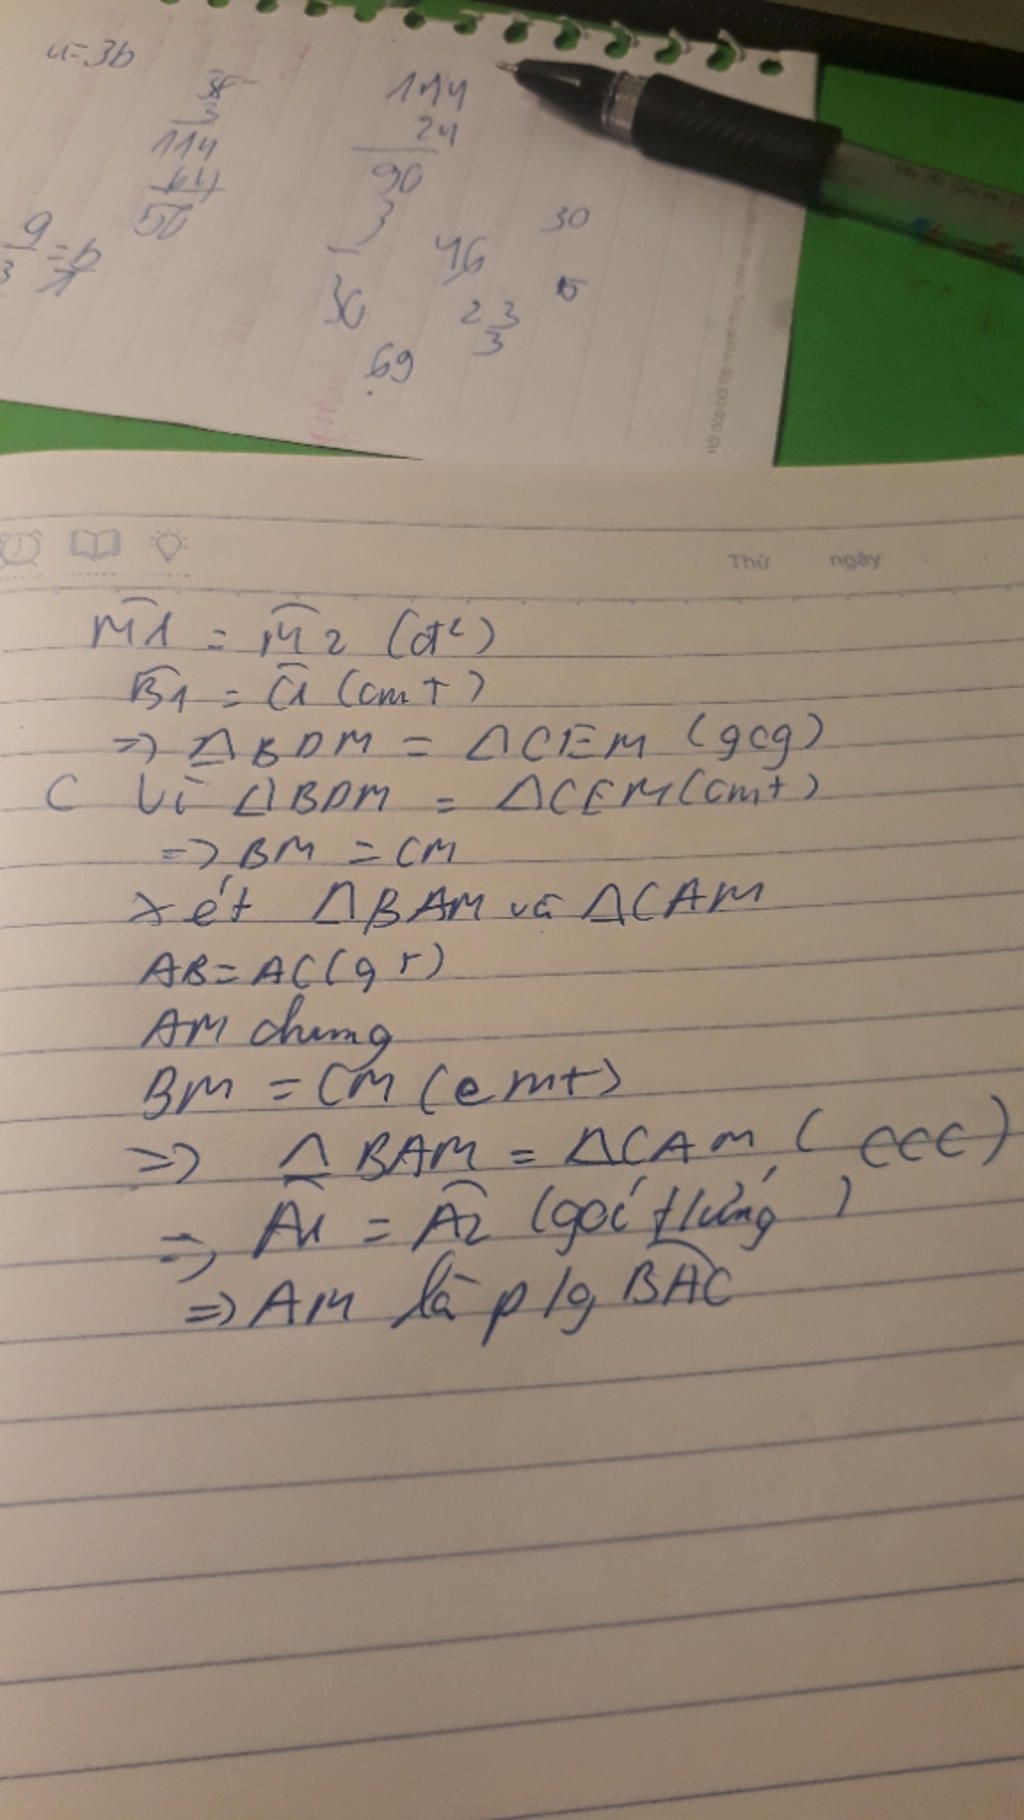 a=3b
38
3
114
64
50
114
24
90
3
30
46
2 3
3
30
15
69
Thứ ngày
M1 = M2 (đ²)
B1 = C1 (cmt)
=> ΔBDM = ΔCEM (gcg)
C Vì ΔBDM = ΔCEM (cmt)
=> BM = CM
xét ΔBAM và ΔCAM
AB = AC (gt)
AM chung
BM = CM (cmt)
=> ΔBAM = ΔCAM (ccc)
=> A1 = A2 (goí tứng)
=> AM là p/g BAC